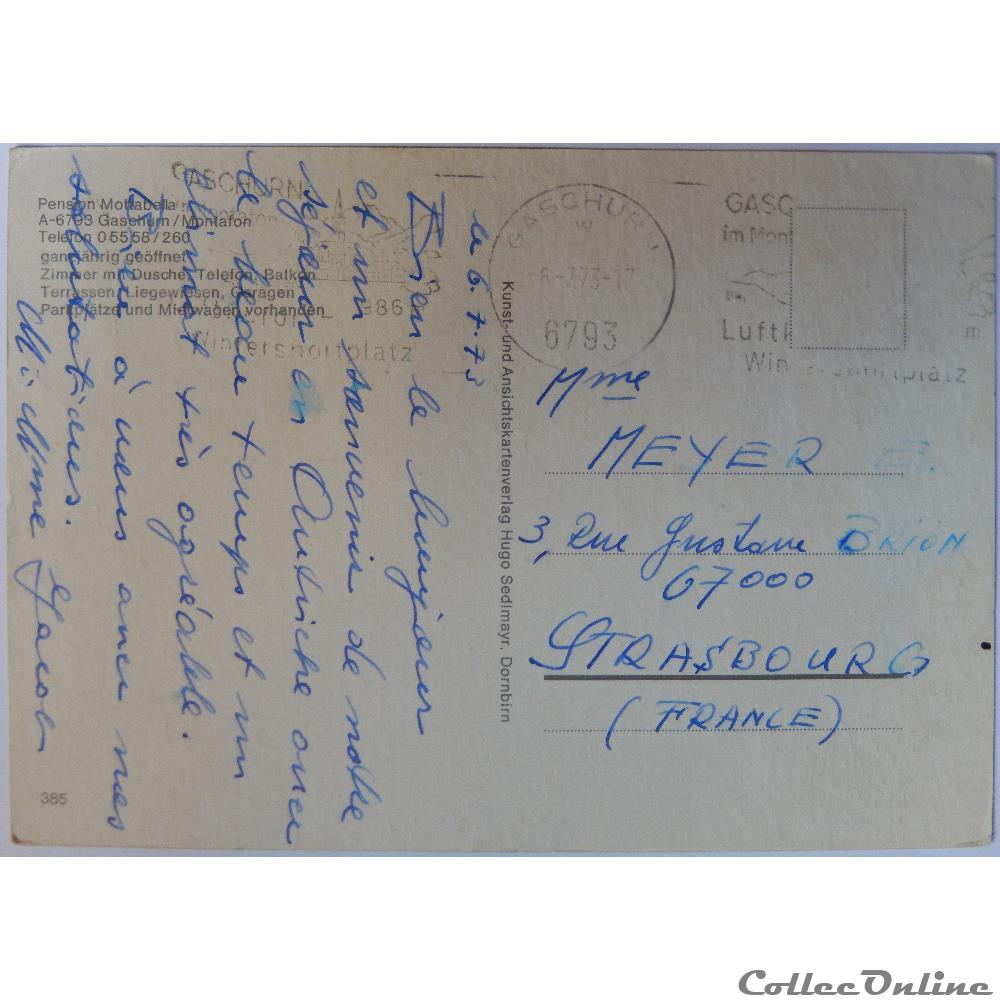 Pension Mottabella
A-6793 Gaschurn/Montafon
Telefon 05558/260
ganzjährig geöffnet
Zimmer mit Dusche, Telefon, Balkon
Terrassen, Liegewiesen, Garagen
Parkplätze und Mietwagen vorhanden
GASCHURN
Montafon
986
Wintersportplatz
385
le 6.7.73
Bien le bonjour
et un souvenir de notre
séjour en Autriche avec
le beau temps et un
climat très agréable.
à vous avec mes
salutations.
Mr. Mme
Kunst- und Ansichtskartenverlag Hugo Sedlmayr, Dornbirn
GASCHURN
6.-7.73-17
6793
GASC
im Mon
Luftk
Wintersportplatz
Mme
MEYER E.
3, Rue Gustave BRION
67000
STRASBOURG
(FRANCE)
CollecOnline